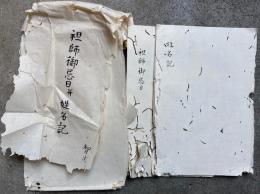 祖師御忌日并姓名記
祖師御忌日
姓名記